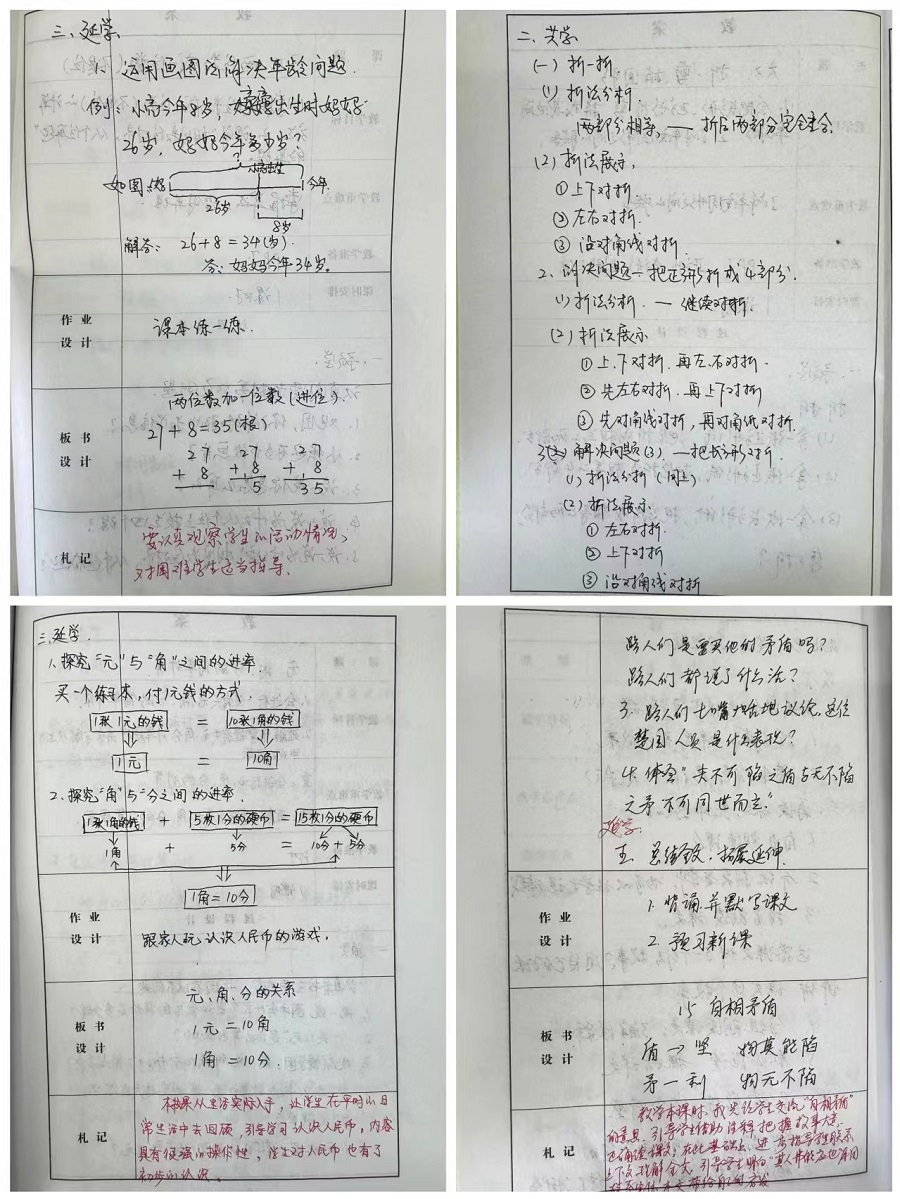 三、延学
1、运用画图法解决年龄问题.
例: 小高今年8岁, 高高出生时妈妈
26岁, 妈妈今年多少岁?
?
小高出生
如图: 妈妈
今年
26岁
8岁
解答: 26+8=34(岁).
答: 妈妈今年34岁.
作业
设计
课本练一练.
板书
设计
两位数加一位数(进位)
27+8=35(根)
27 27 27
+ 8 + 8 + 8
5 35
札记
要认真观察学生的活动情况,
对困难学生适当指导.
二、共学
(一) 折一折
(1) 折法分析
两部分相等, — 折后两部分完全重合.
(2) 折法展示.
①上下对折.
②左右对折.
③沿对角线对折.
2、解决问题—把正方形折成4部分.
(1)折法分析. — 继续对折.
(2) 折法展示
①上、下对折, 再左、右对折.
②先左右对折. 再上下对折
③先对角线对折, 再对角线对折.
3 解决问题(3). —把长方形对折.
(1)折法分析 (同上)
(2)折法展示.
①左右对折.
②上下对折
③沿对角线对折
三、延学.
1、探究“元”与“角”之间的进率.
买一个练习本, 付1元钱的方式.
1张1元的钱 = 10张1角的钱
1元 = 10角
2、探究“角”与“分”之间的进率.
1张1角的钱 + 5枚1分的硬币 = 15枚1分的硬币
1角 + 5分 = 10分+5分
1角=10分
作业
设计
跟家人玩认识人民币的游戏.
板书
设计
元、角、分的关系
1元=10角
1角=10分.
札记
本节课从生活实际入手, 让学生在平时的日
常生活中去回顾, 引导学习认识人民币, 内容
具有很强的操作性, 学生对人民币也有了
初步的认识.
路人们是要买他的矛盾吗?
路人们都说了什么话?
3、路人们七嘴八舌地议论, 这位
楚国人员是什么表现?
4、体会“夫不可陷之盾与无不陷
之矛不可同世而立.”
延学.
五、总结全文, 拓展延伸.
作业
设计
1、背诵并默写课文
2、预习新课
板书
设计
15 自相矛盾
盾→坚 物莫能陷
矛—利 物无不陷
札记
教学本课时, 我先让学生交流“自相矛盾”
的意思, 引导学生借助注释把握故事大意,
正确读课文; 在此基础上, 进一步指导学生联系
上下文理解全文, 引导学生明白